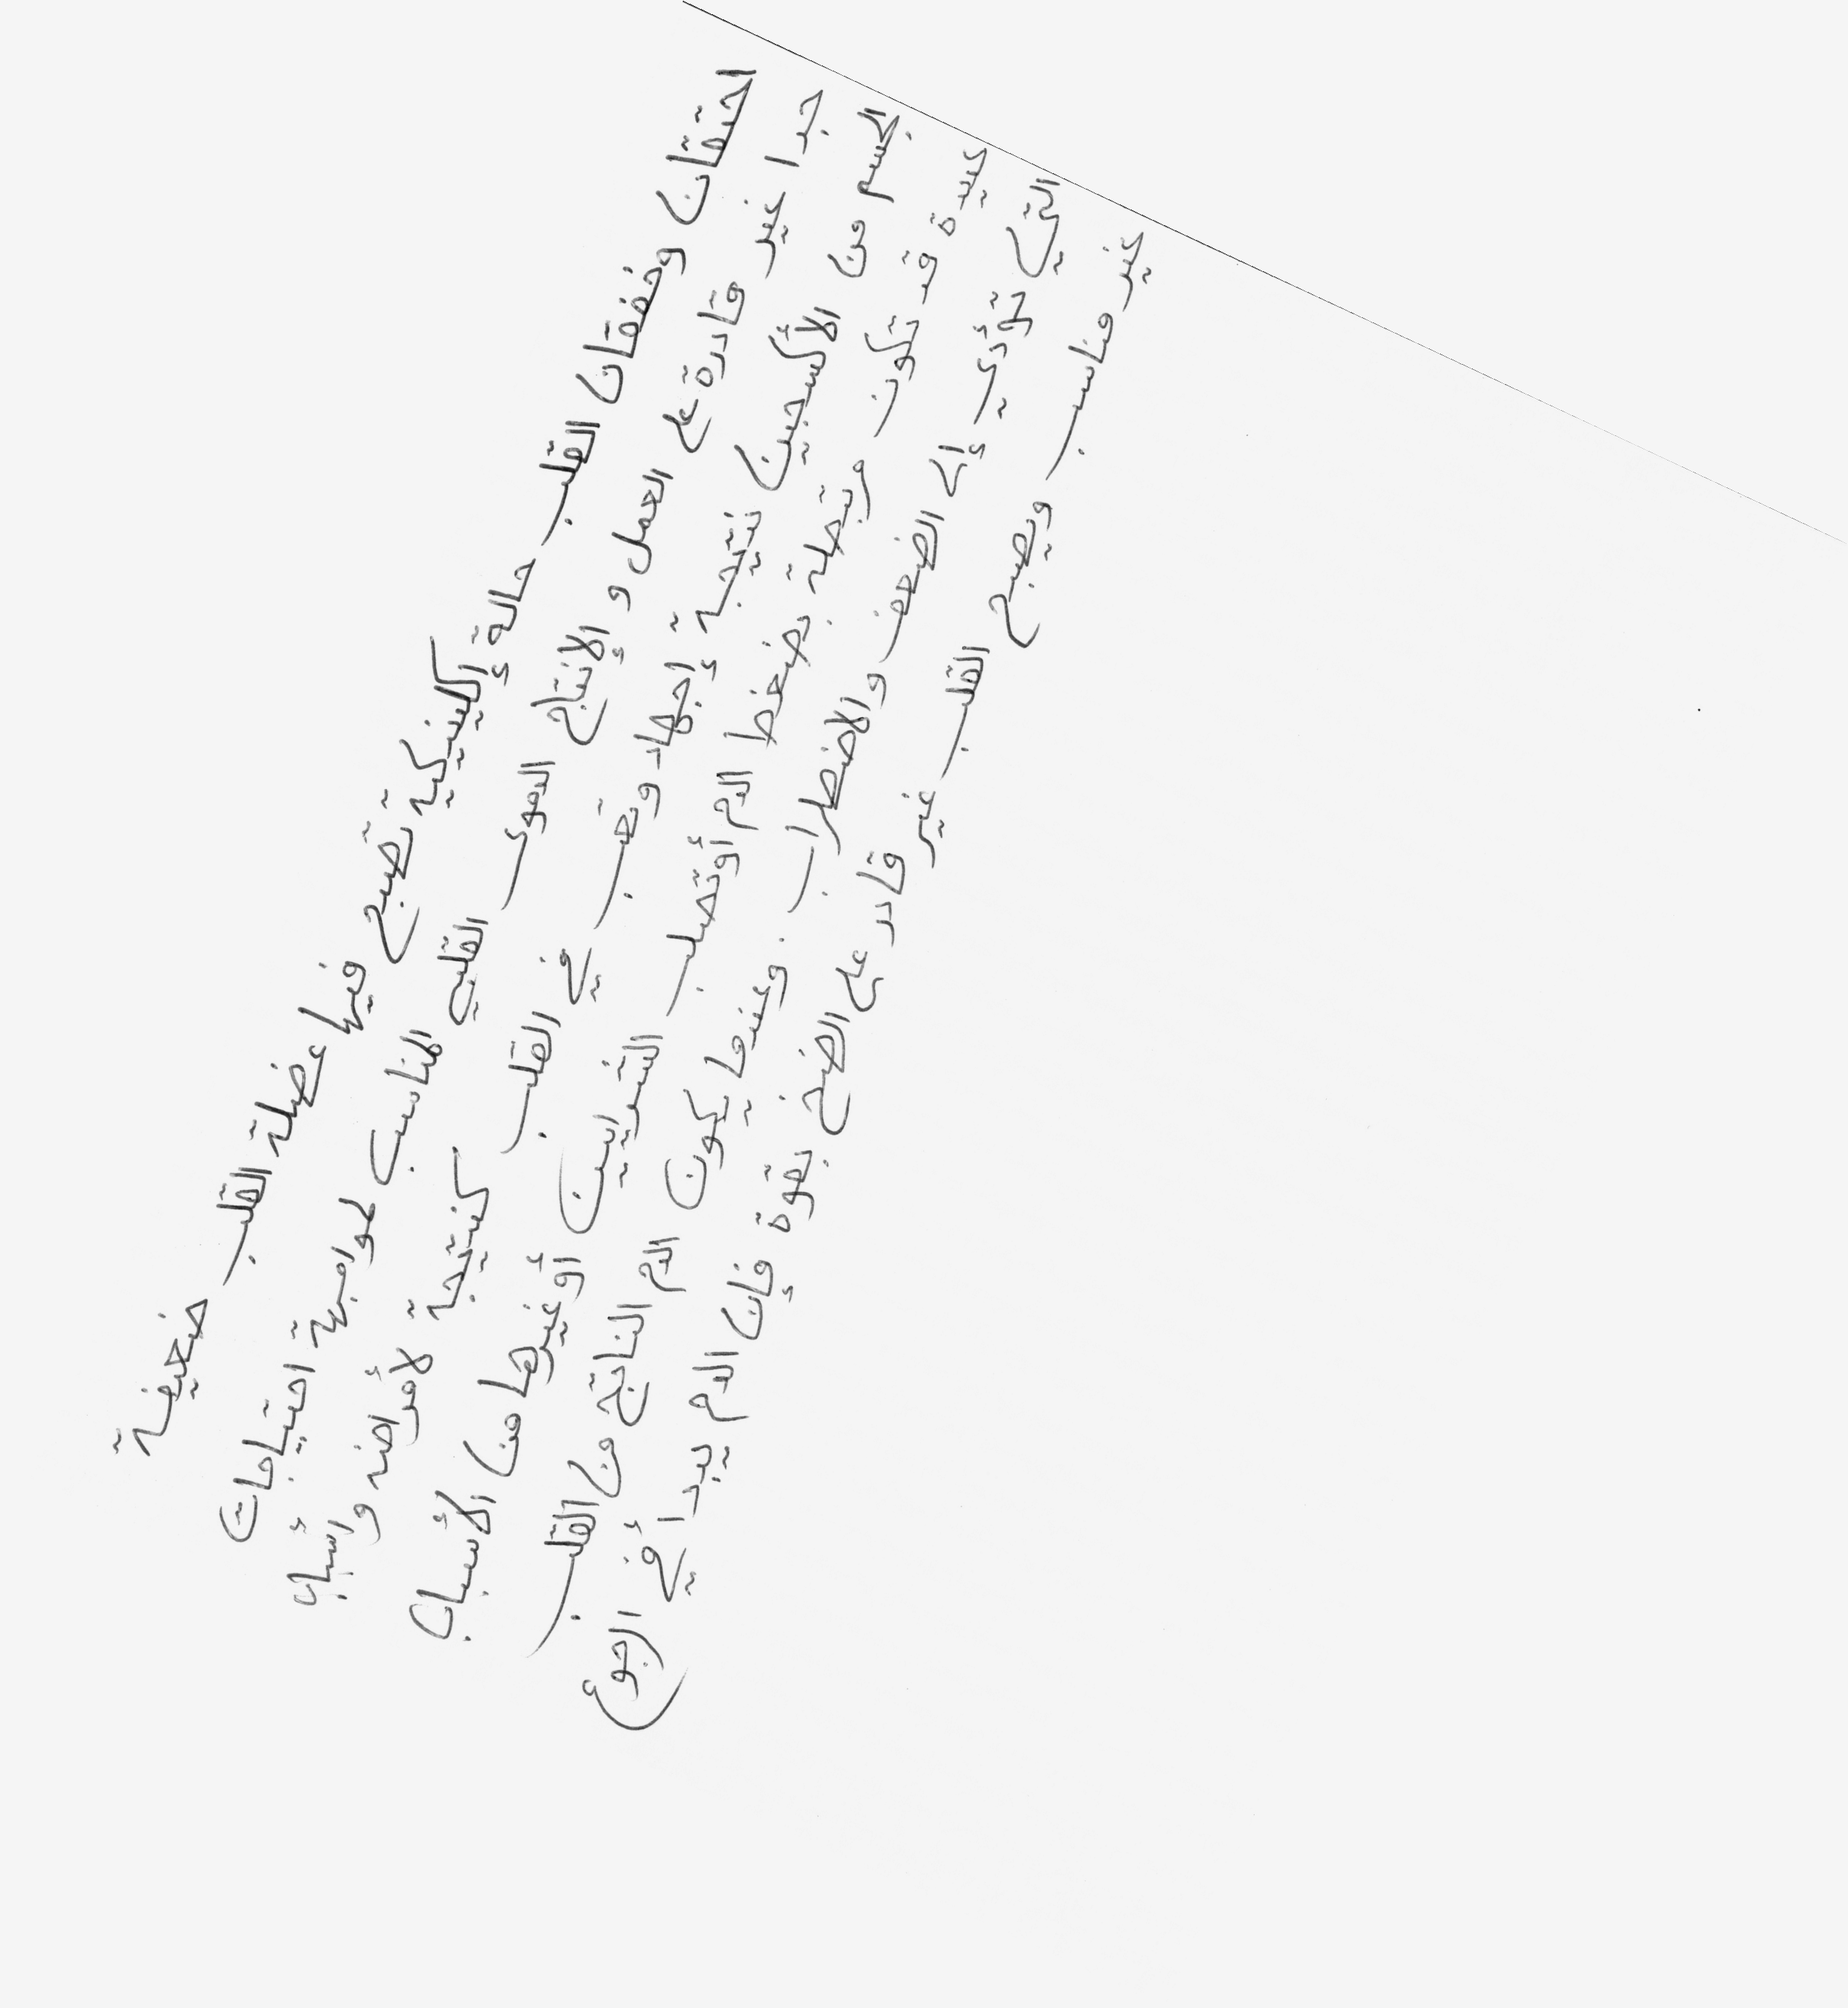 احتقان وخفقان القلب حالة إكلينيكية تصبح فيها عضلة القلب ضعيفة
جدا غير قادرة على العمل و الإنتاج الدموي القلبي المناسب لمواجهة احتياجات
الجسم من الأكسجين نتيجة إجهاد وتعب في القلب كنتيجة لأمراضه وأسبابه
عديدة قد تكون مرتبطة بضغط الدم أو تصلب الشرايين أو غيرها من الأسباب
التي تؤدي إلى الضعف والاضطراب. وعندما يكون الدم الناتج من القلب
غير مناسب ويصبح القلب غير قادر على الضخ بقوة فإن الدم يبدأ في الرجوع